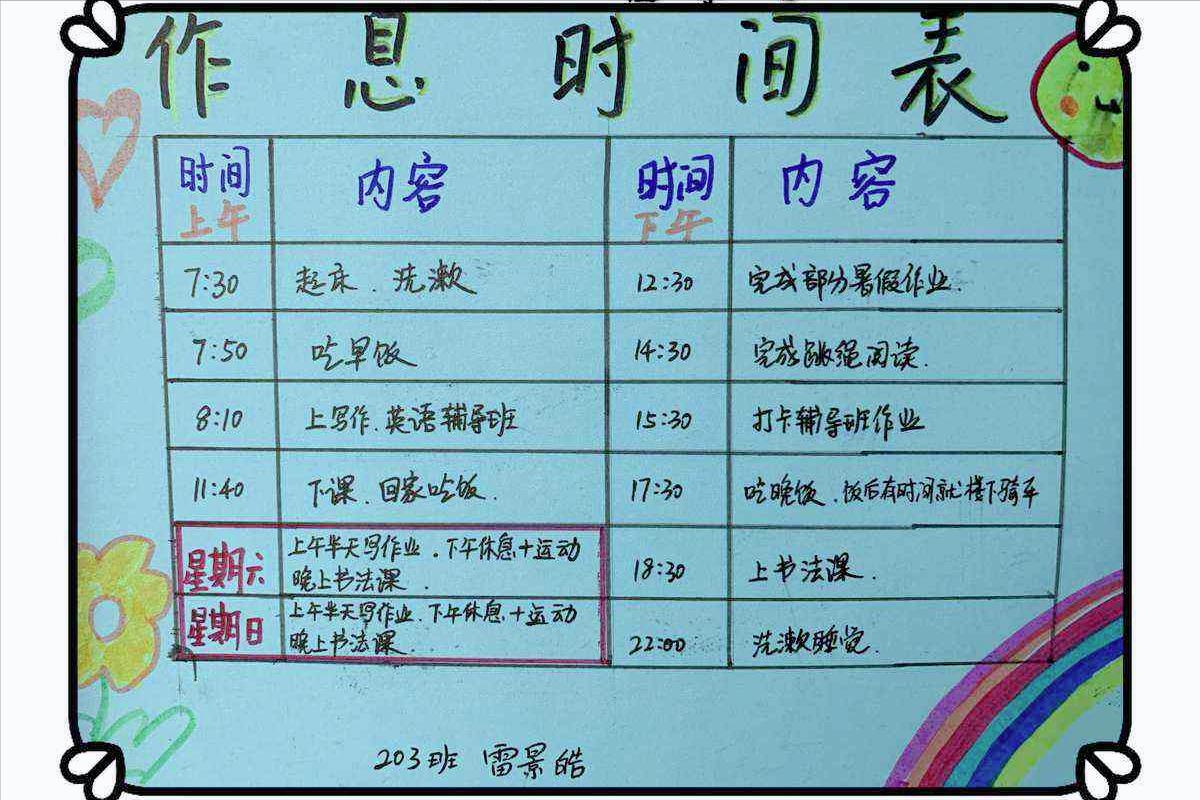 作息时间表
时间 上午 内容 时间 下午 内容
7:30 起床、洗漱 12:30 完成部分暑假作业.
7:50 吃早饭 14:30 完成跳绳阅读.
8:10 上写作、英语辅导班 15:30 打卡辅导班作业
11:40 下课、回家吃饭. 17:30 吃晚饭、饭后有时间就楼下骑车
星期六 上午半天写作业.下午休息+运动
晚上书法课.
18:30 上书法课.
星期日 上午半天写作业.下午休息+运动
晚上书法课.
22:00 洗漱睡觉.
203班 雷景皓